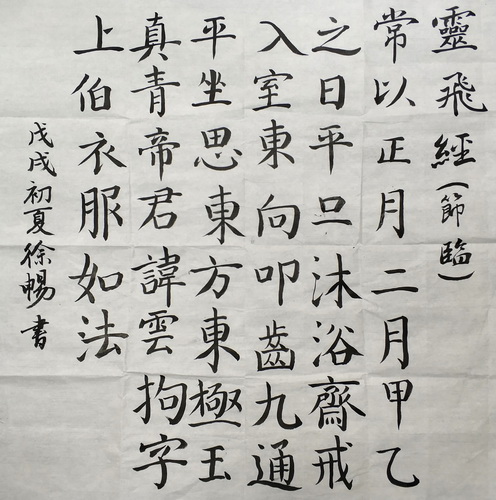 靈飛經（節臨）
常以正月二月甲乙
之日平旦沐浴齋戒
入室東向叩齒九通
平坐思東方東極玉
真青帝君諱雲拘字
上伯衣服如法
戊戌初夏徐暢書